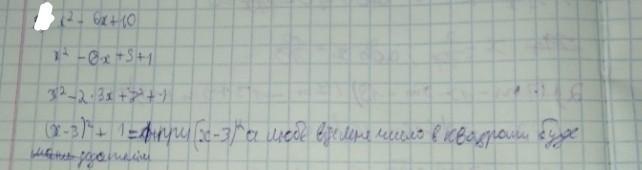 x² - 6x+10
x² - 6x+9+1
x² - 2·3x+3²+1
(x-3)²+ 1 = при (x-3)² а любе відємне число в квадраті буде
додатнім